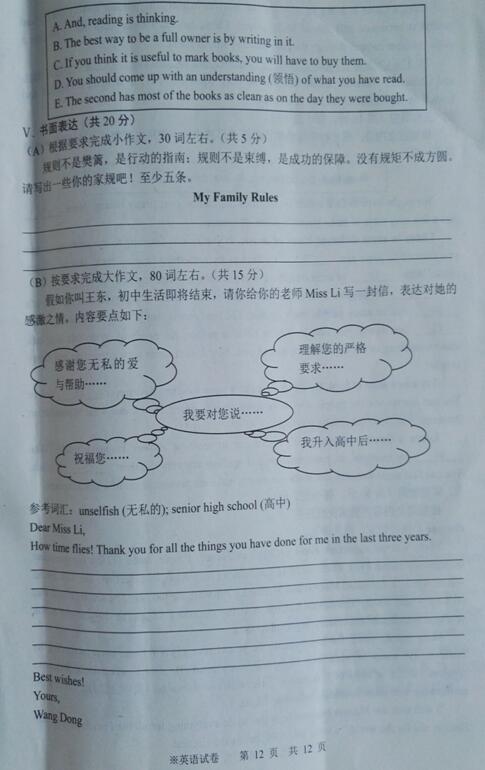 A. And, reading is thinking.
B. The best way to be a full owner is by writing in it.
C. If you think it is useful to mark books, you will have to buy them.
D. You should come up with an understanding (领悟) of what you have read.
E. The second has most of the books as clean as on the day they were bought.
V. 书面表达（共 20 分）
(A) 根据要求完成小作文，30 词左右。（共 5 分）
规则不是樊篱，是行动的指南；规则不是束缚，是成功的保障。没有规矩不成方圆。
请写出一些你的家规吧！至少五条。
My Family Rules
(B) 按要求完成大作文，80 词左右。（共 15 分）
假如你叫王东，初中生活即将结束，请你给你的老师 Miss Li 写一封信，表达对她的
感激之情。内容要点如下：
感谢您无私的爱
与帮助……
理解您的严格
要求……
我要对您说……
祝福您……
我升入高中后……
参考词汇：unselfish (无私的); senior high school (高中)
Dear Miss Li,
How time flies! Thank you for all the things you have done for me in the last three years.
Best wishes!
Yours,
Wang Dong
※英语试卷 第 12 页 共 12 页